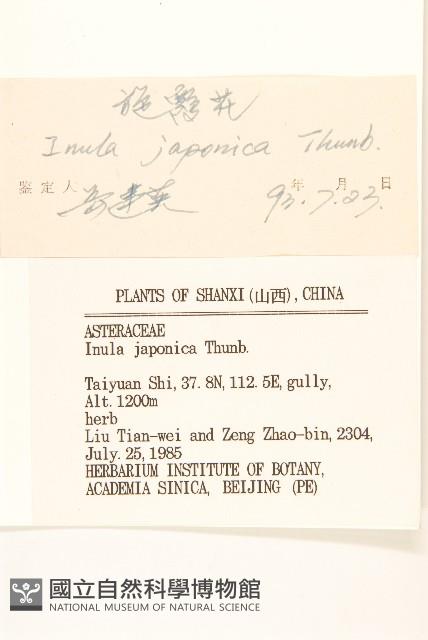 Inula japonica Thunb.
鉴定人 93年7月23日
PLANTS OF SHANXI (山西), CHINA
ASTERACEAE
Inula japonica Thunb.
Taiyuan Shi, 37.8N, 112.5E, gully,
Alt. 1200m
herb
Liu Tian-wei and Zeng Zhao-bin, 2304,
July. 25, 1985
HERBARIUM INSTITUTE OF BOTANY,
ACADEMIA SINICA, BEIJING (PE)
國立自然科學博物館
NATIONAL MUSEUM OF NATURAL SCIENCE